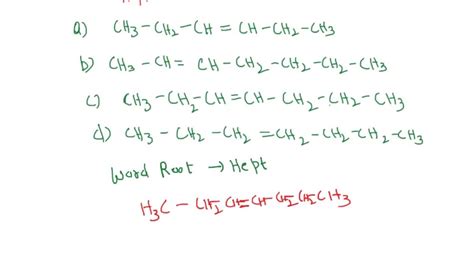 a) CH3-CH2-CH=CH-CH2-CH3
b) CH3-CH= CH-CH2-CH2-CH2-CH3
c) CH3-CH2-CH=CH-CH2-CH2-CH3
d) CH3-CH2-CH2=CH2-CH2-CH2-CH3
Word Root → Hept
H3C-CH2CH=CH-CH2CH2CH3